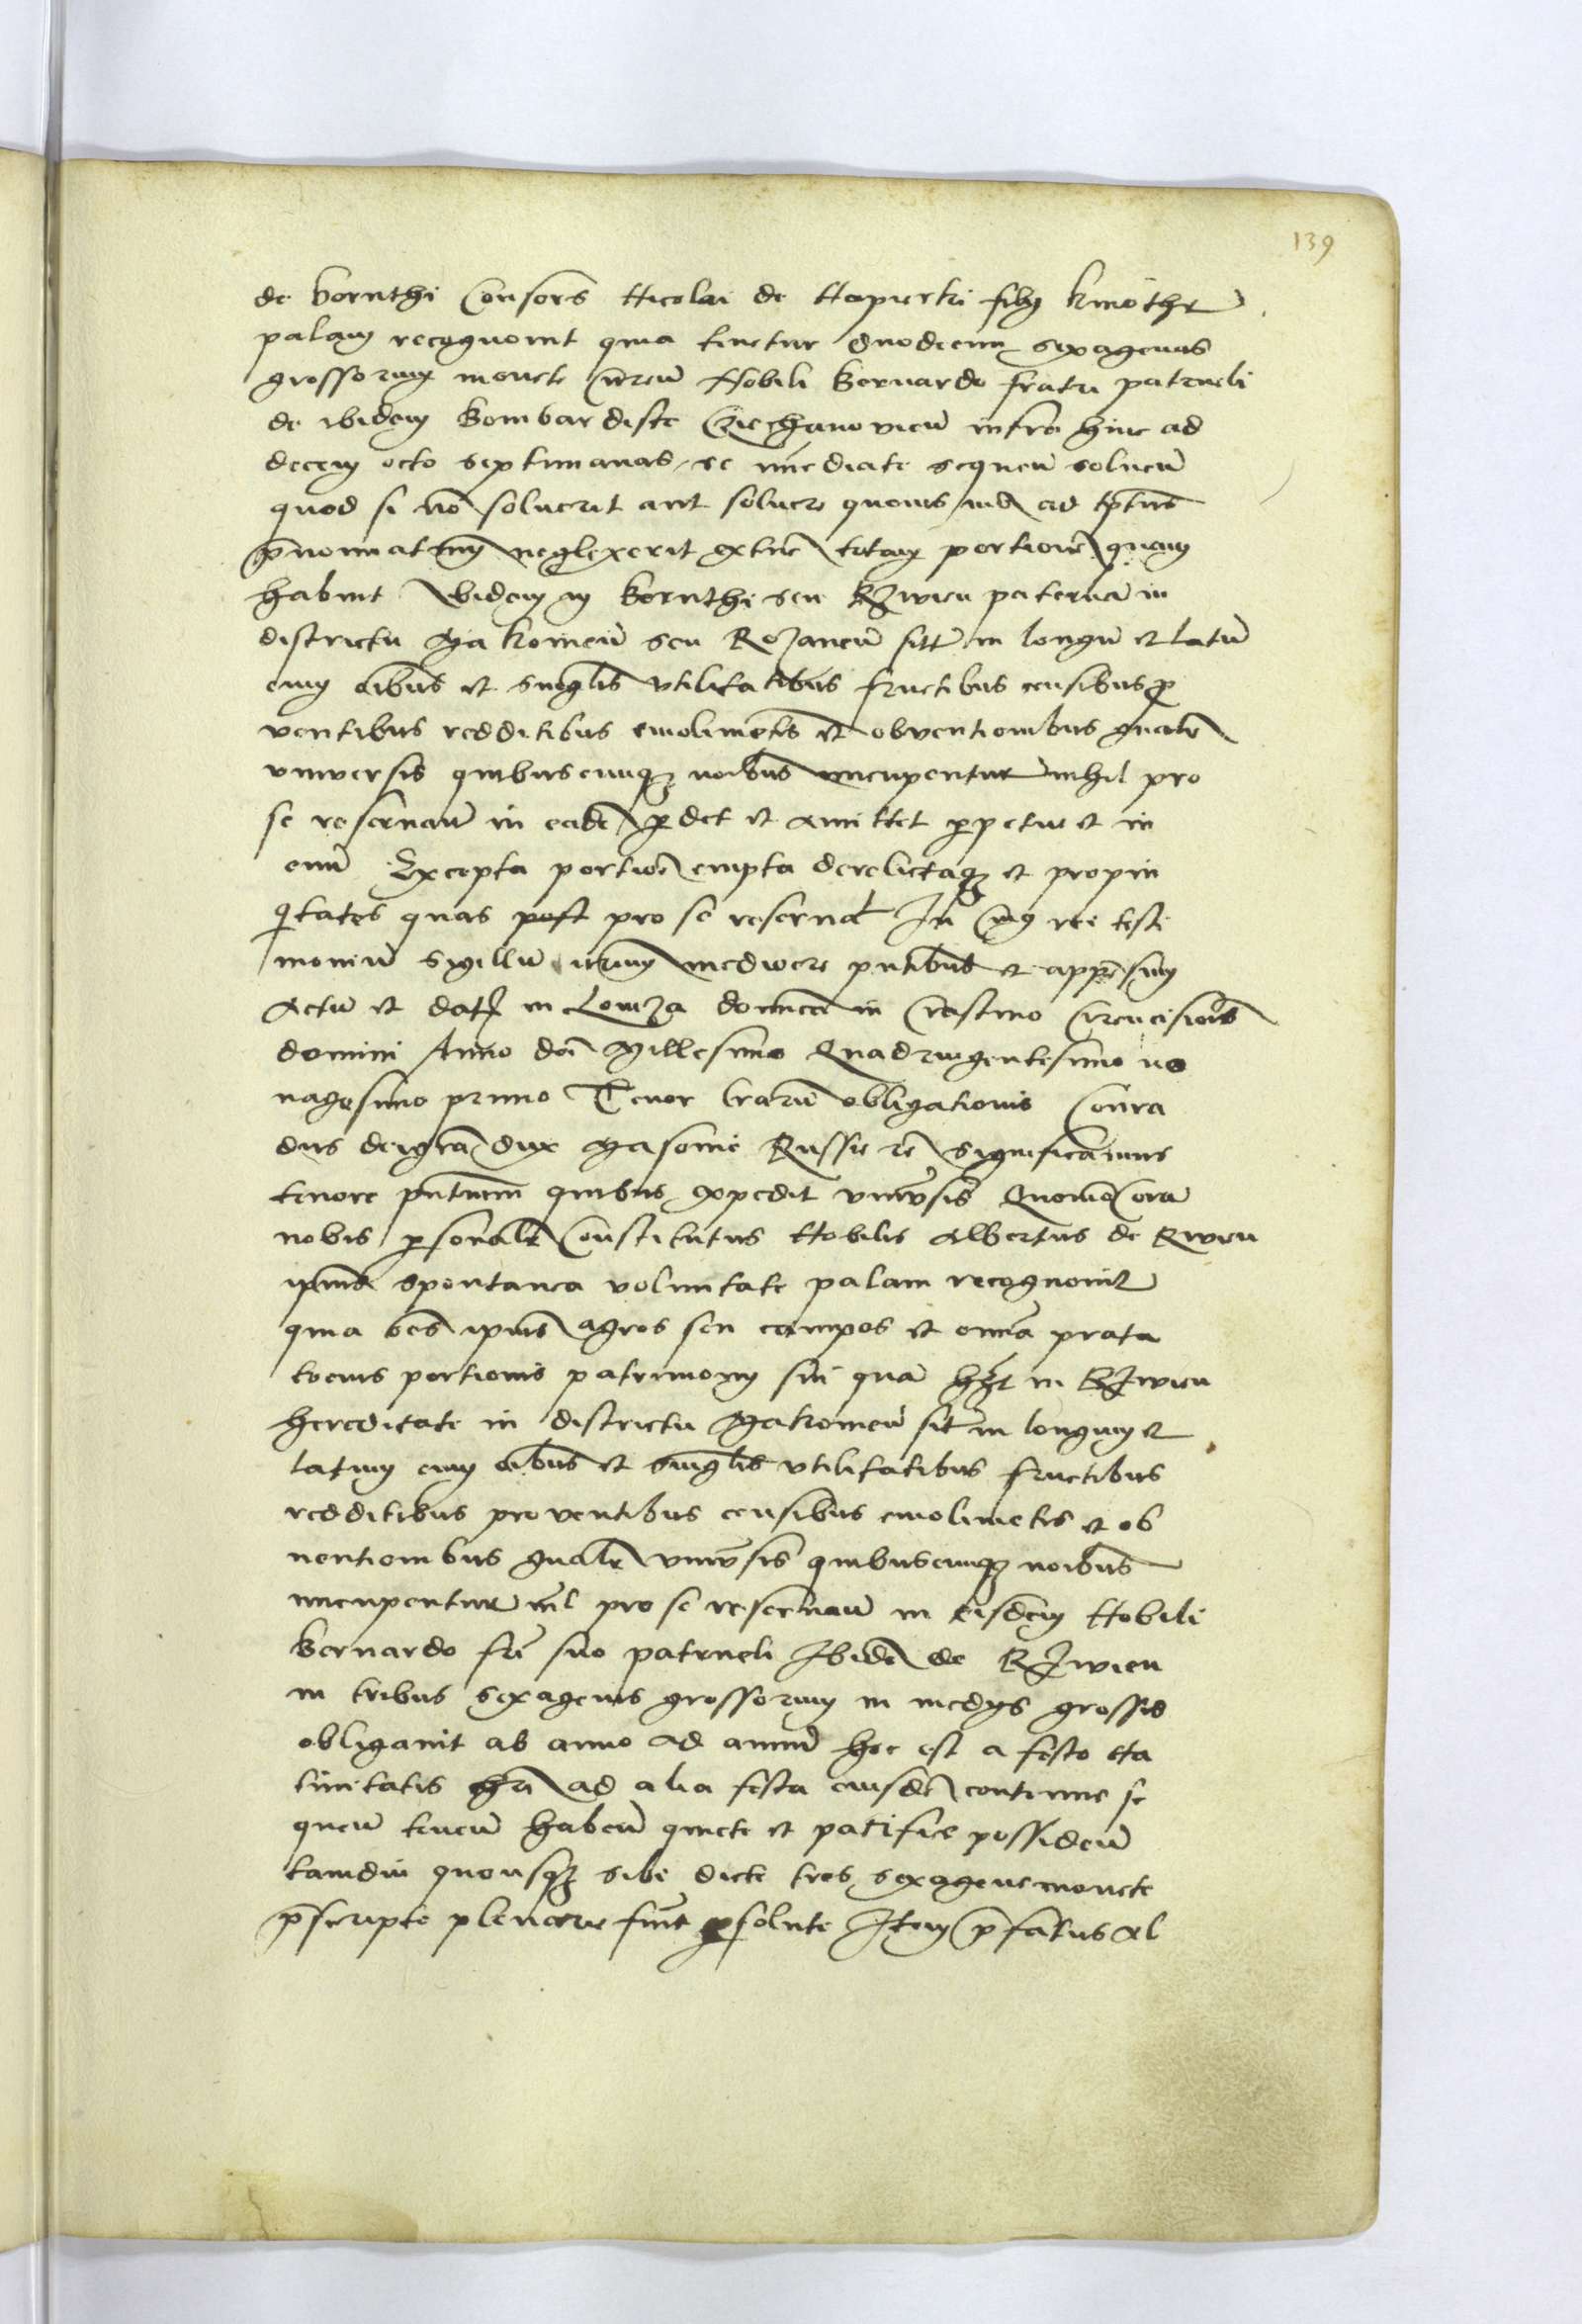 139
de bornthi Consors Nicolai de Napierki filÿ kmothe
palam recognovit quia tenetur duodecim sexagenas
grossorum monete curen̄ Nobili Bernardo fratri patrueli
de ibidem Bombardiste Cziechanouien̄ infra hinc ad
decem octo septimanas se īmediate sequen̄ soluen̄
quod si nō soluerit aut soluere quouis ad
p̄nominatum neglexerit extunc totam portionē quam
habuit ibidem in Bornthi seu Rzwien paternā in
districtu Makouien̄ seu Rozanen̄ sitā in longū et latū
cum oībus et singulis vtilitatibus fructibus censibus pro
ventibus redditibus emolimentis et obventionibus gnālr
vniversis quibuscumq; noībus nuncupentur nihil pro
se reseruan̄ in eadē perdet et amittet perpetue et in
euū Excepta portiōe empta derelictaq; et propin
quitates quas post pro se reseruat In cuius rei testi
moniū sigillū nrūm mediocre pñtibus est appensum
Actū et datū in Lomza domīca in Crastino Circucisionis
domini Anno doī Millesimo Quadringentesimo no
nagesimo primo Tenor lrārū obligationis Conra
dus dei grā dux Masouie Russie zc̄ significamus
tenore pñtium quibus expedit vniūsis Quomō Corā
nobis personalr Constitutus Nobilis Albertus de Rwien
ipius spontanea voluntate palam recognouit
quia oēs ipius agros seu campos et omnia prata
tocius portionis patrimonÿ sui quā hēt in Rzwien
hereditate in districtu Makouien̄ sitā in longum et
latum cum oībus et singlis vtilitatibus fructibus
redditibus proventibus censibus emolimētis et ob
uentionibus gnālr vniūsis quibuscumq; noībus
nuncupentur nīl pro se reseruan̄ in eisdem Nobili
Bernardo frī suo patrueli Ibidē de Rzwien
in tribus sexagenis grossorum in medÿs grossis
obligauit ab anno ad annū hoc est a festo Na
tiuitatis Chrī ad alia festa eiusdē continue se
quen̄ tenen̄ haben̄ quiete et pacifice possiden̄
tamdiu quousq; sibi dicte tres sexagene monete
p̄scripte plenarie fuīt persolute Item p̄fatus Al